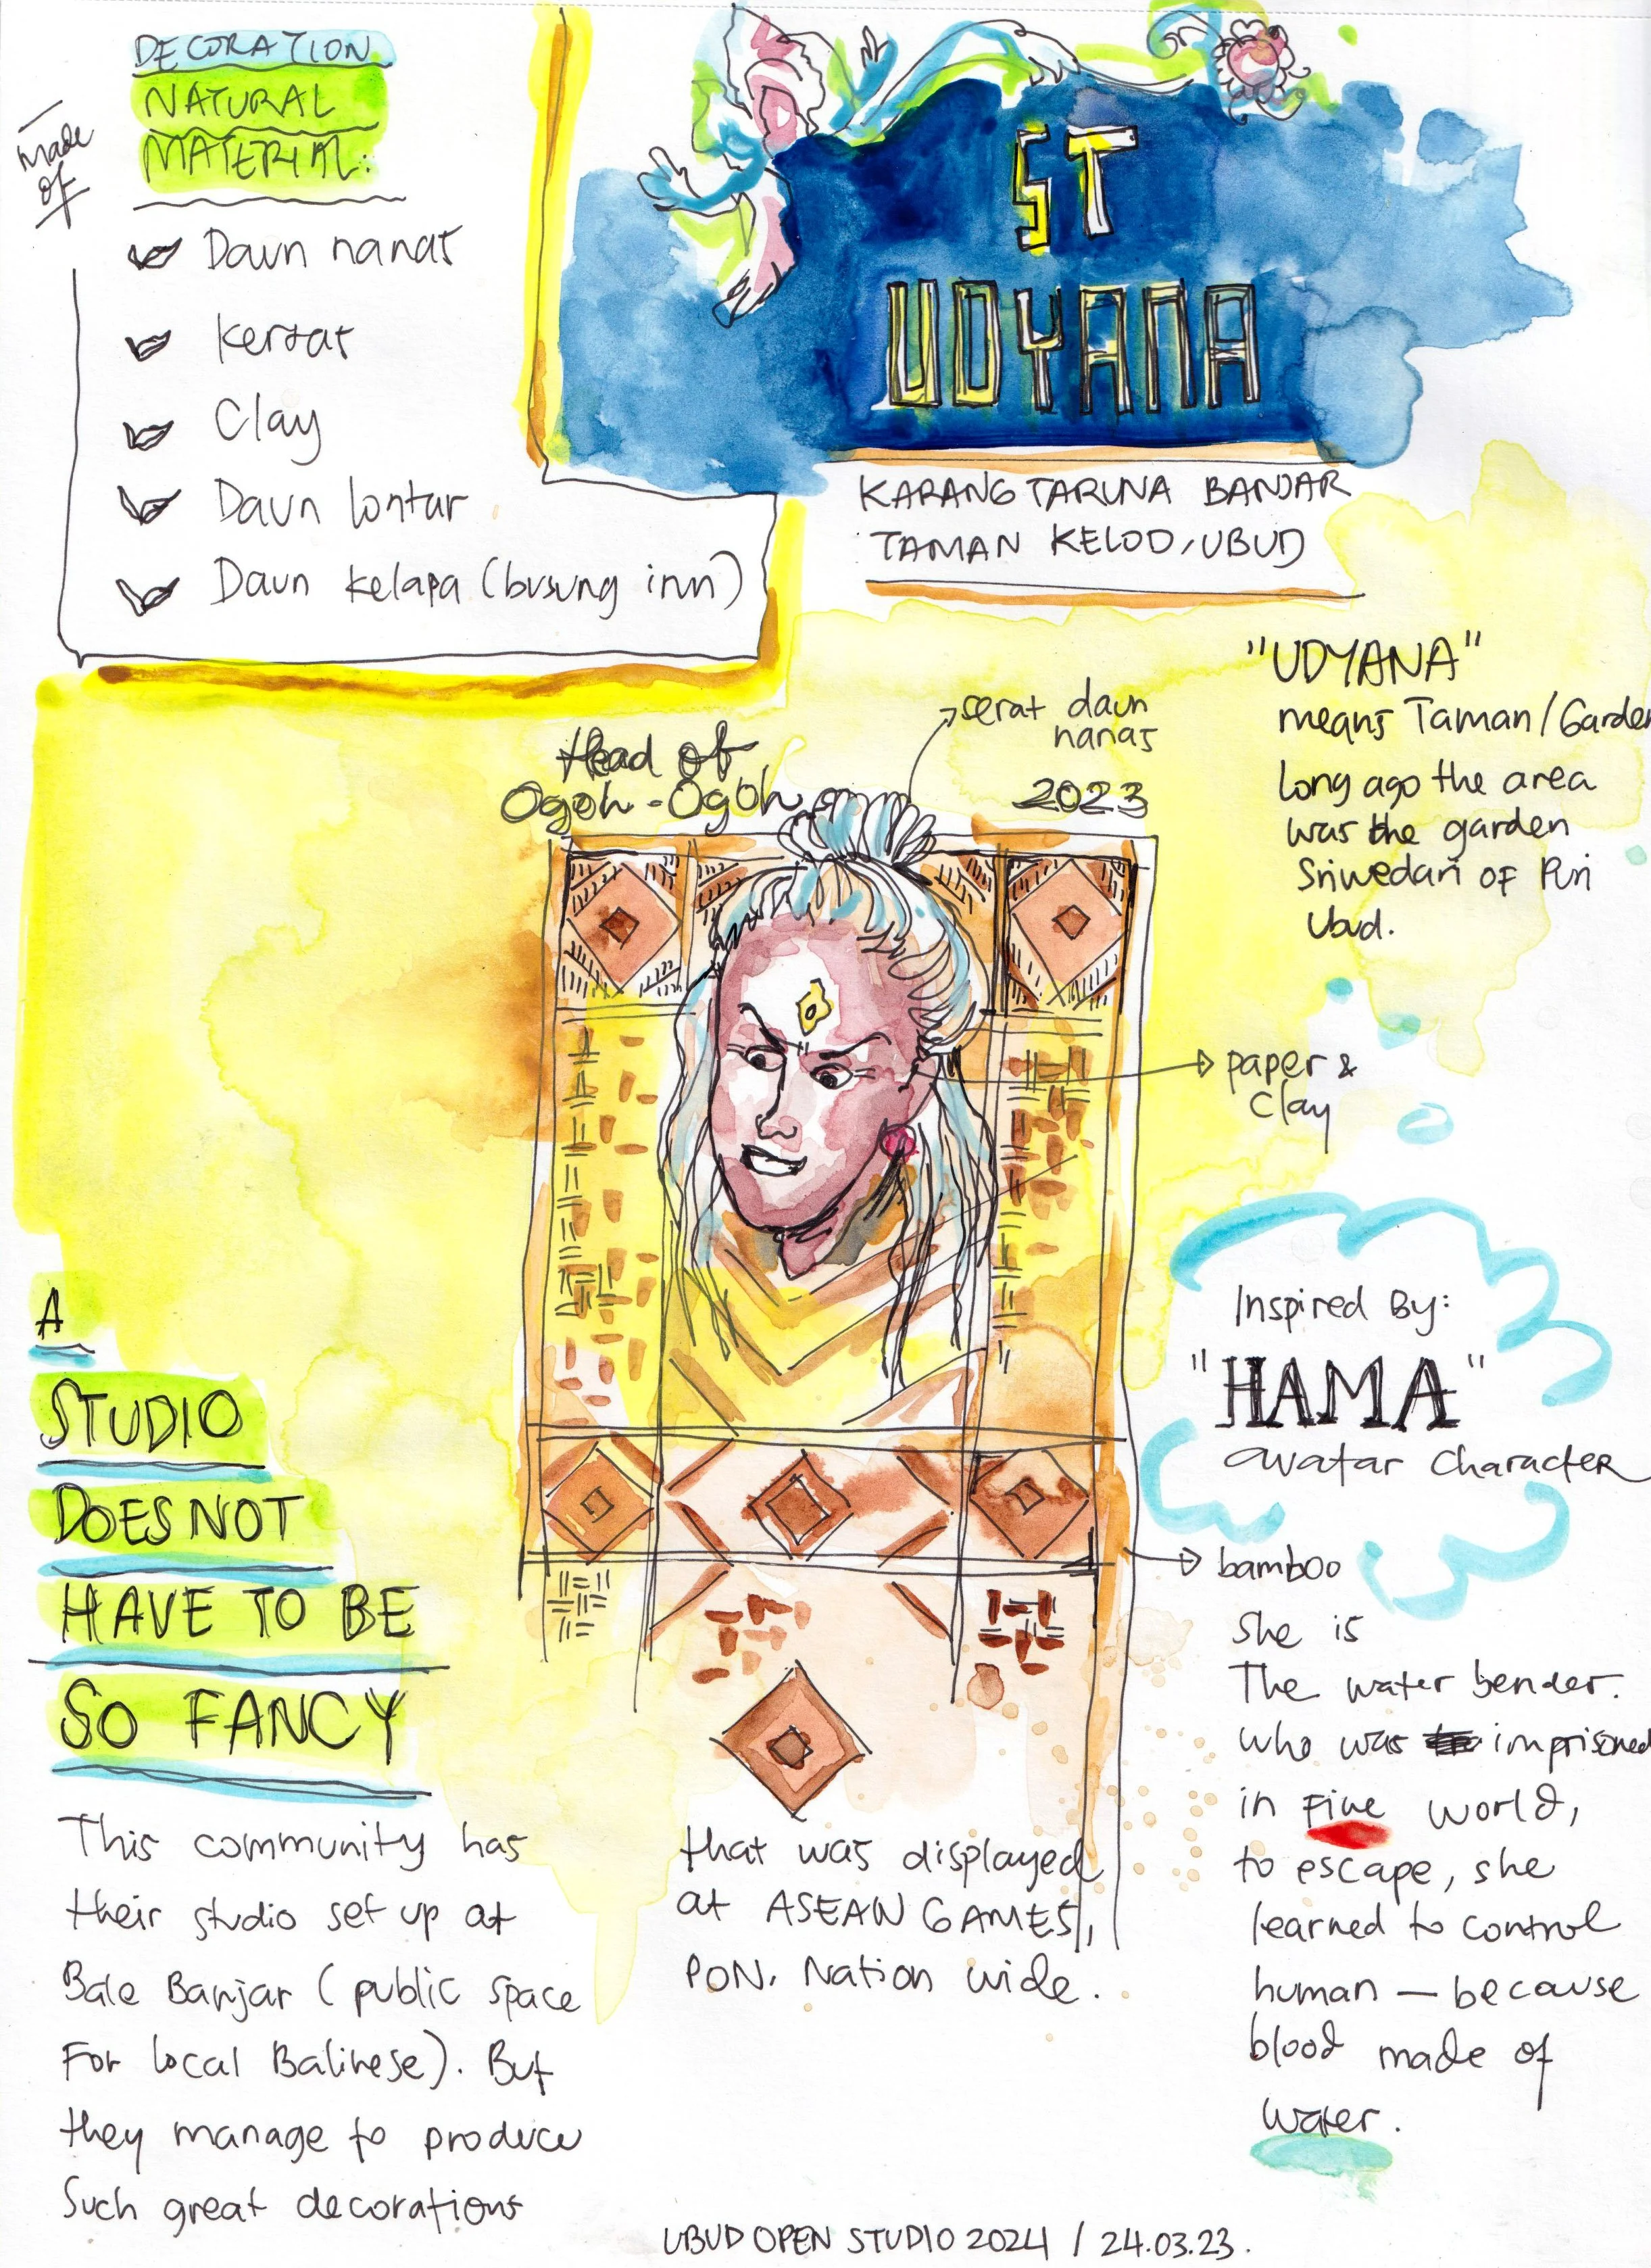 DECORATION
NATURAL
MATERIAL:
made
of
Daun nanas
kertas
Clay
Daun lontar
Daun kelapa (busung inn)
ST
UDYANA
KARANG TARUNA BANJAR
TAMAN KELOD, UBUD
"UDYANA"
means Taman/Garden
long ago the area
was the garden
Sriwedari OF Puri
Ubud.
Head of
Ogoh-Ogoh 2023
serat daun
nanas
paper &
Clay
Inspired By:
"HAMA"
avatar character
bamboo
She is
The water bender.
who was imprisoned
in Fire world,
to escape, she
learned to control
human — because
blood made of
water.
A
STUDIO
DOES NOT
HAVE TO BE
SO FANCY
This community has
their studio set up at
Bale Banjar (public space
For local Balinese). But
they manage to produce
Such great decorations
that was displayed
at ASEAN GAMES,
PON. Nation wide.
UBUD OPEN STUDIO 2024 / 24.03.23.